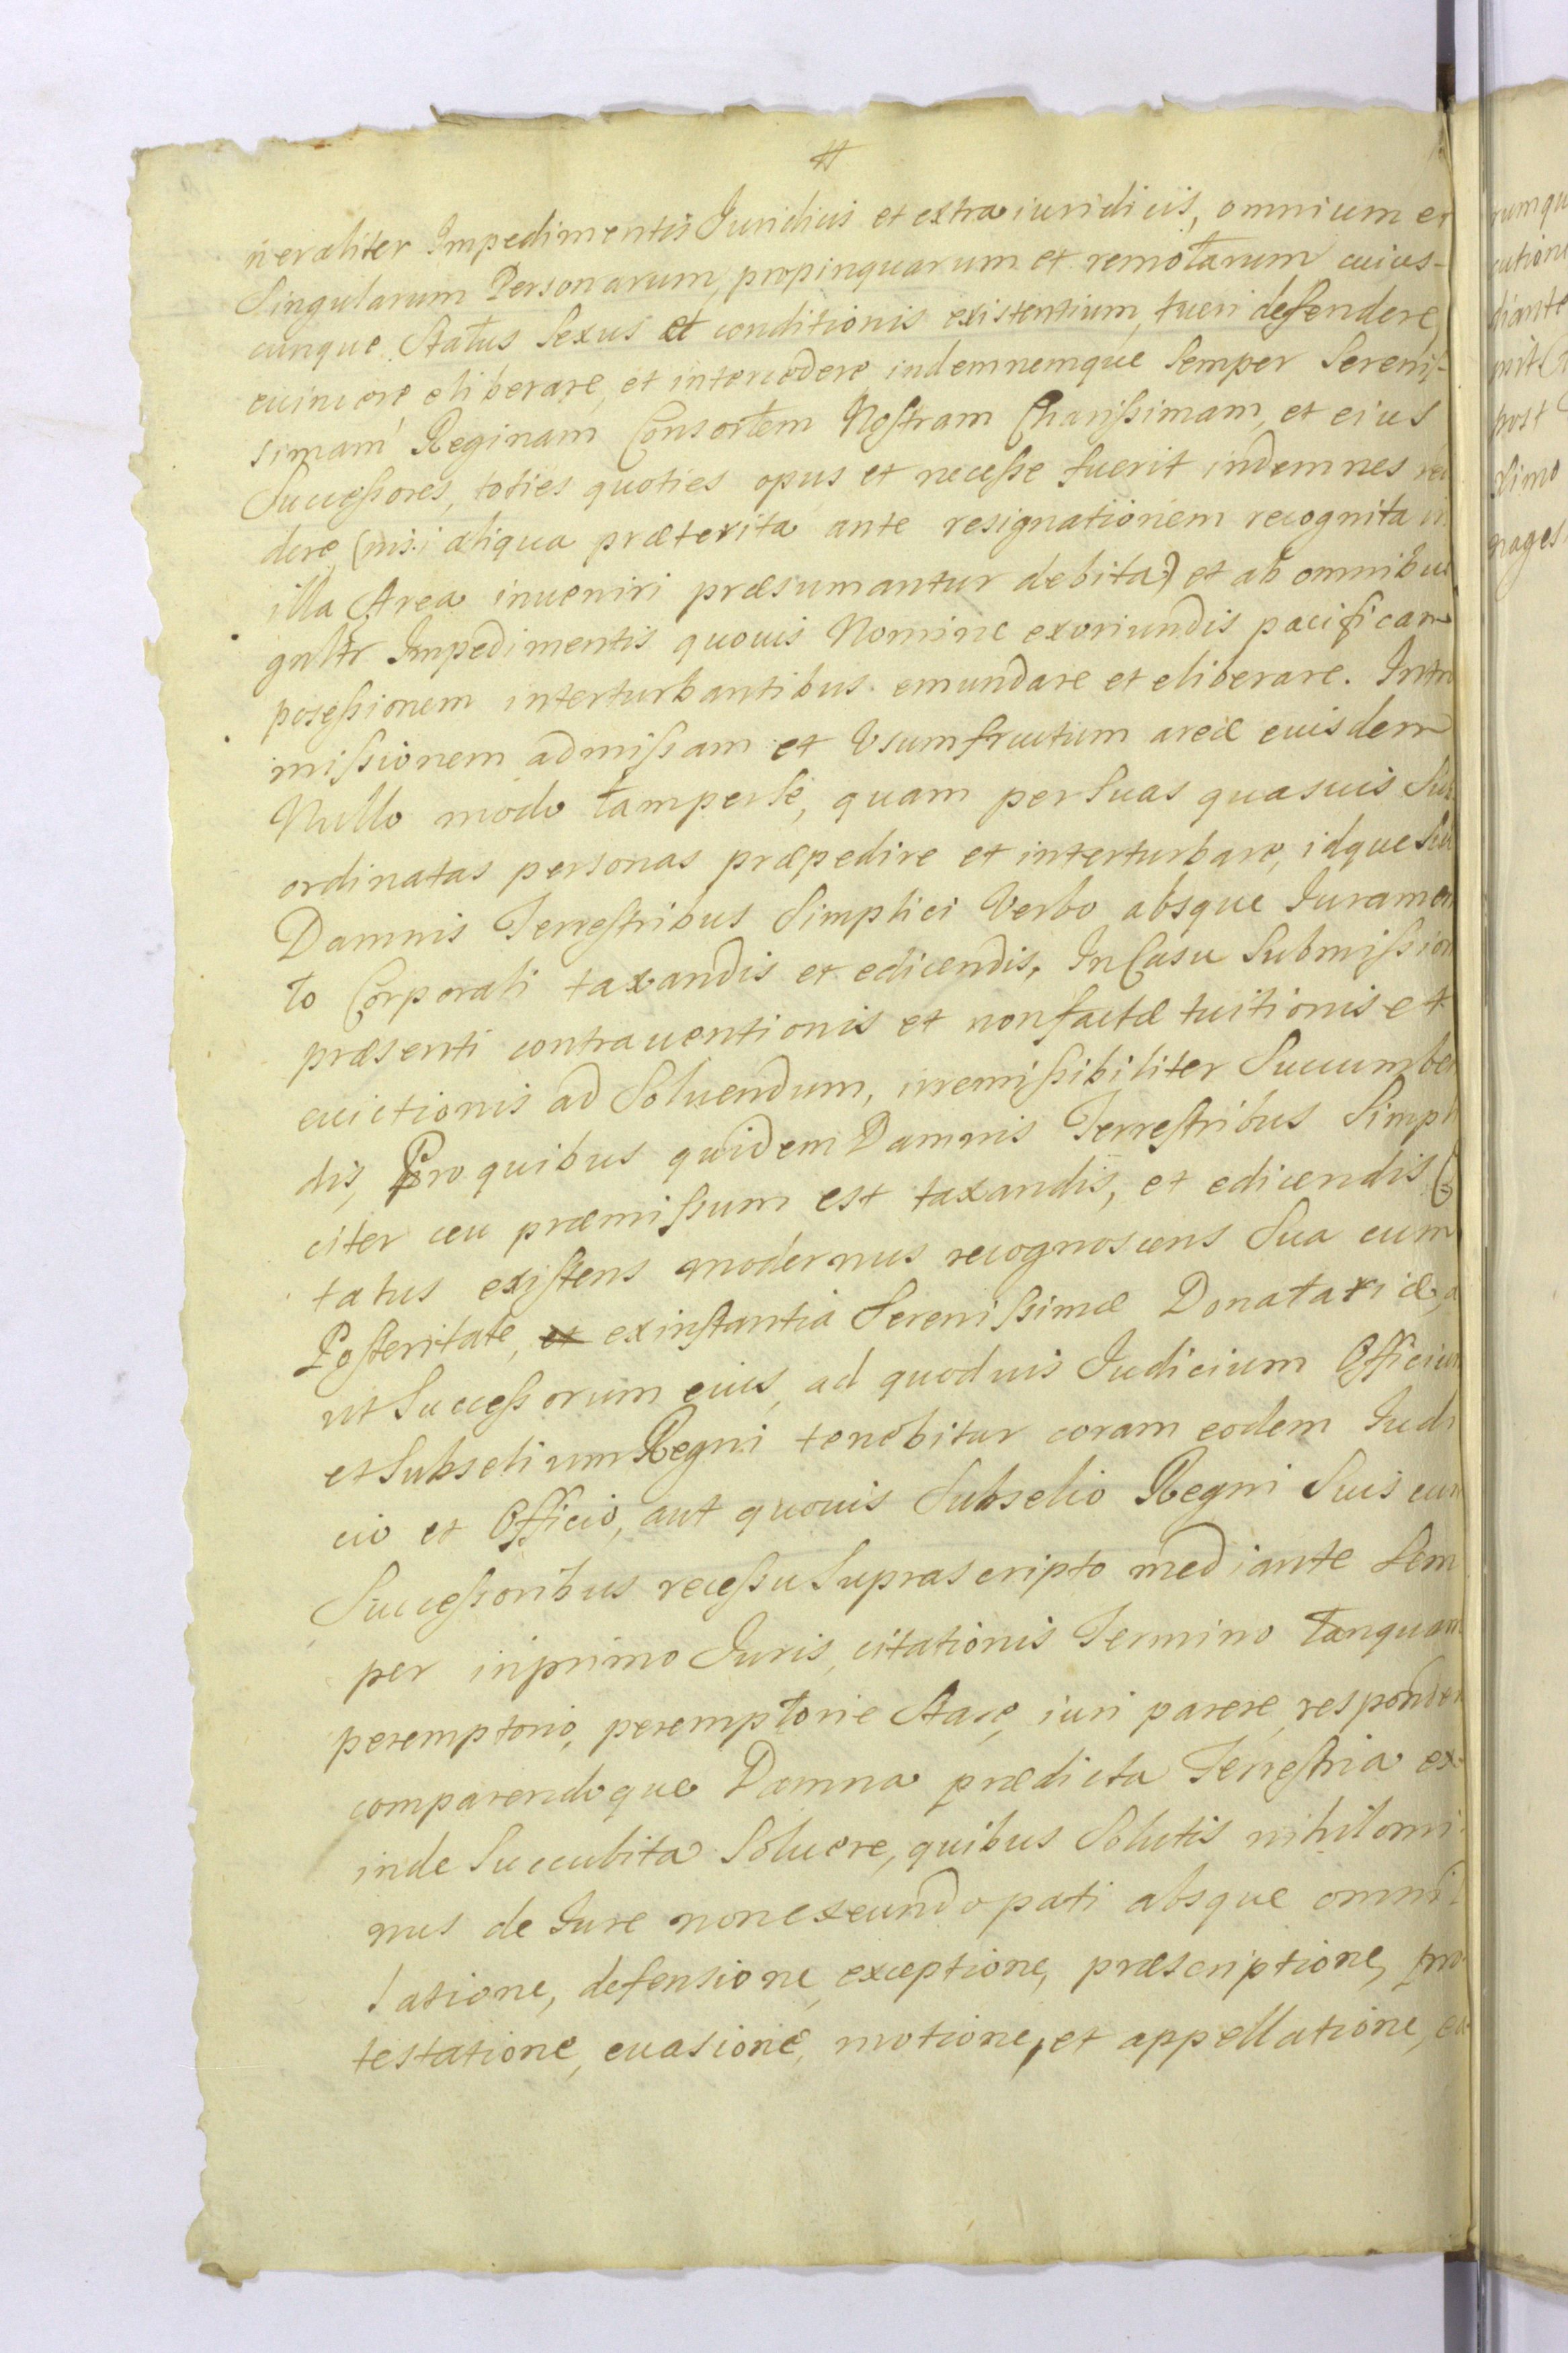 #
neraliter Impedimentis Juridicis et extraiuridicis, omnium et
Singularum Personarum, propinquarum et remotarum cuius-
cunque Status Sexus et conditionis existentium, tueri defendere,
euincere eliberare, et intercedere, indemnemque Semper Serenis-
simam Reginam Consortem Nostram Charissimam, et eius
Successores, toties quoties opus et necesse fuerit indemnes red
dere, (nisi aliqua præterita ante resignationem recognita in
illa Area inueniri præsumantur debita) et ab omnibus
gnltr Impedimentis quouis Nomine exoriundis pacificam
posessionem interturbantibus emundare et eliberare. Intro
missionem admissam et Usumfructum areæ euisdem
Nullo modo tamperse, quam per Suas quasuis Sub
ordinatas personas præpedire et interturbare, idque Sub
Damnis Terrestribus Simplici Verbo absque Juramen
to Corporali taxandis et edicendis, In Casu Submission
præsenti contrauentionis et nonfactæ tuitionis et
euictionis ad Soluendum, irremissibiliter Succumben
dis, Pro quibus quidem Damnis Terrestribus Simpli
citer ceu præmissum est taxandis, et edicendis Ci
tatus existens modernus recognoscens Sua cum
Posteritate, et exinstantia Serenissimæ Donatariæ, a
ut Successorum eius, ad quoduis Judicium Officium
et Subselium Regni tenebitur coram eodem Judi
cio et Officio, aut quouis Subselio Regni Suis cum
Successoribus recessu Suprascripto mediante Sem
per inprimo Juris, citationis Termino tanquam
peremptorio, peremptorie Stare, iuri parere, responder
comparendoque Damna prædicta Terrestria ex-
inde Succubita Soluere, quibus Solutis nihilomi-
nus de Jure nonexeundo pati absque omni di
latione, defensione, exceptione, præscriptione, pro-
testatione, euasione, motione, et appellatione, ea
rumqu
cution
diante
post
ximo